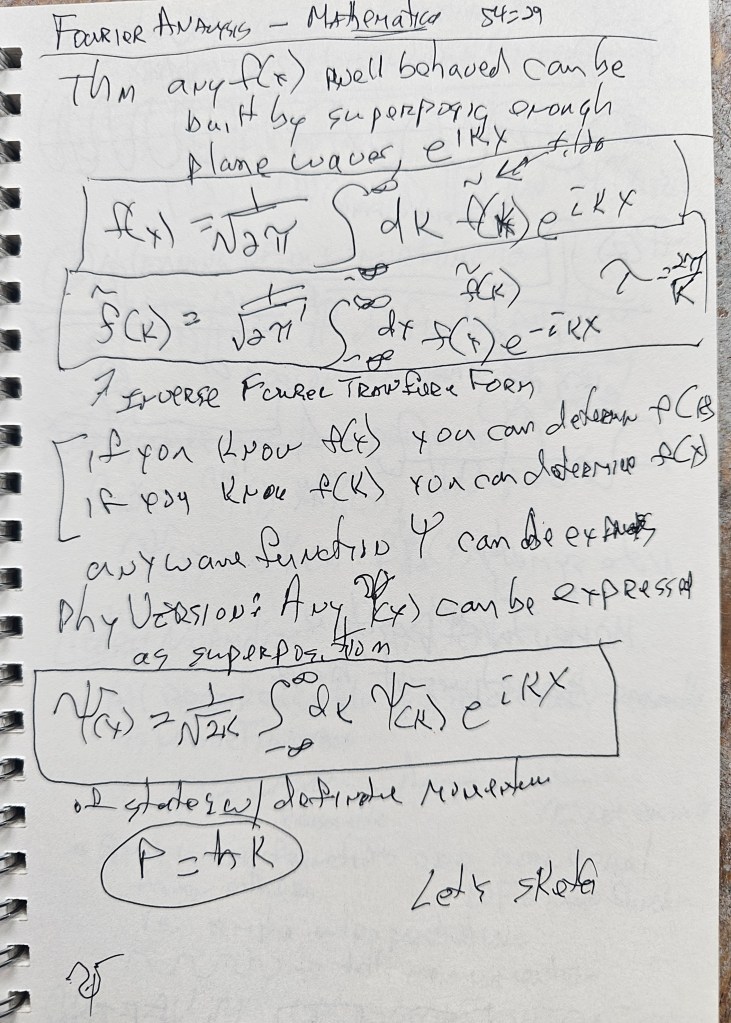 FOURIER ANALYSIS - MATHEMATICA 54=29
Thm any f(x) well behaved can be
built by superposig enough
plane waves, e^ikx
f(x) = 1/√2π ∫_-∞^∞ dk f̃(k) e^ikx ← tilda
f̃(k) = 1/√2π ∫_-∞^∞ dx f(x) e^-ikx f̃(k) λ = 2π/k
INVERSE FORM
if you know f(x) you can determ f(k)
if you know f(k) you can determine f(x)
any wave function ψ can be
Phy VERSION: Any ψ(x) can be expressed
as superposition
ψ(x) = 1/√2K ∫_-∞^∞ dk ψ(k) e^ikx
of states w/ definate momentum
P = ħk
Let's sketch
ψ